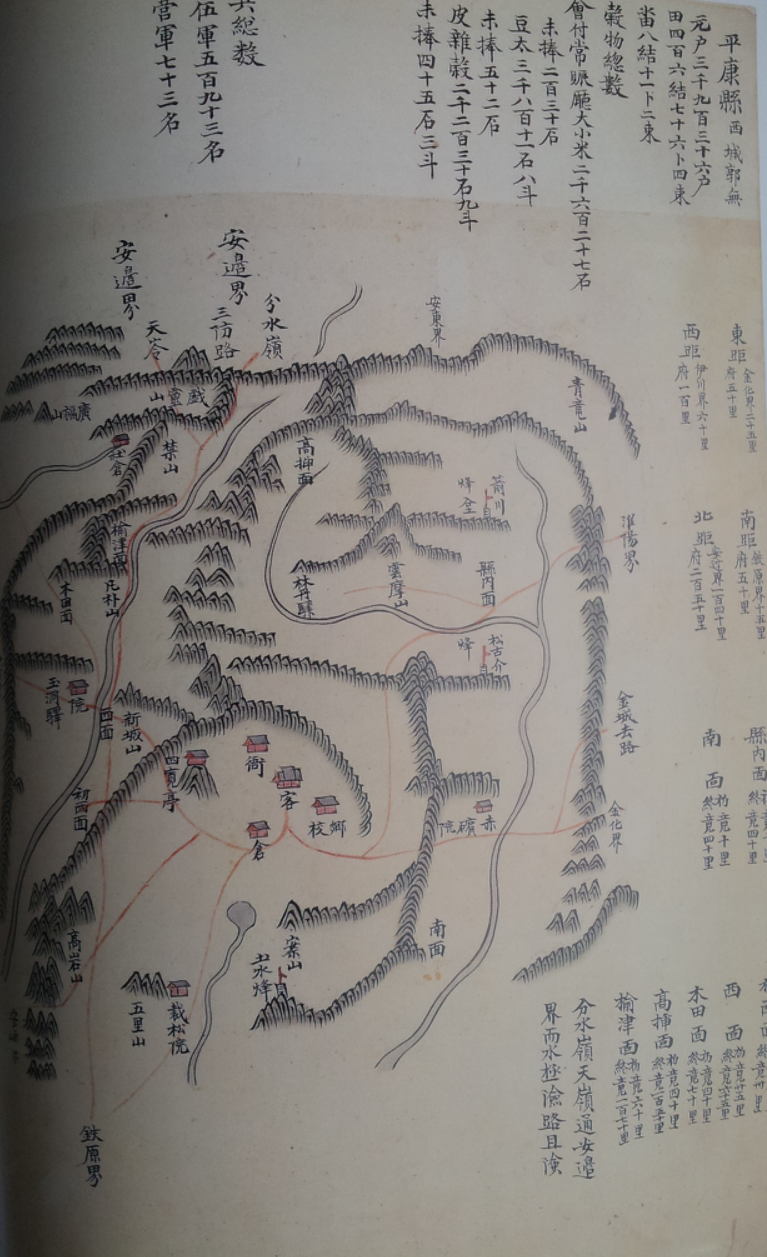 平康縣 西 城郭無
元户三千九百三十六户
田四百六結七十六卜四束
畓八結十一卜二束
穀物總數
會付常賑廳大小米二千六百二十七石
未捧二百三十石
豆太三千八百十一石八斗
未捧五十二石
皮雜穀二千二百三十石九斗
未捧四十五石三斗
總數
伍軍五百九十三名
營軍七十三名
東距 金化界二十五里
府五十里
西距 伊川界六十里
府一百里
南距 鉄原界十五里
府五十里
北距 安邊界一百四十里
府二百五十里
安邊界
安邊界
三防路
分水嶺
天岺
戱靈山
廣福山
禁山
高揷面
青竜山
淮陽界
烽坌
箭川
雲摩山
林丹驛
縣內面
烽
松古介
榆津面
木田面
玉洞驛
院
西面
新城山
初西面
四寬亭
衙
客
倉
鄉校
赤礦院
金城去路
金化界
南面
寨山
土水烽
栽松院
五里山
高岩山
鉄原界
縣內面
終竟四十里
南面 初竟十里
終竟四十里
西面
木田面 初竟四十里
終竟七十里
高揷面 初竟四十里
終竟一百五十里
榆津面 初竟六十里
終竟一百七十里
分水嶺天嶺通安邊
界而水極澮路且險